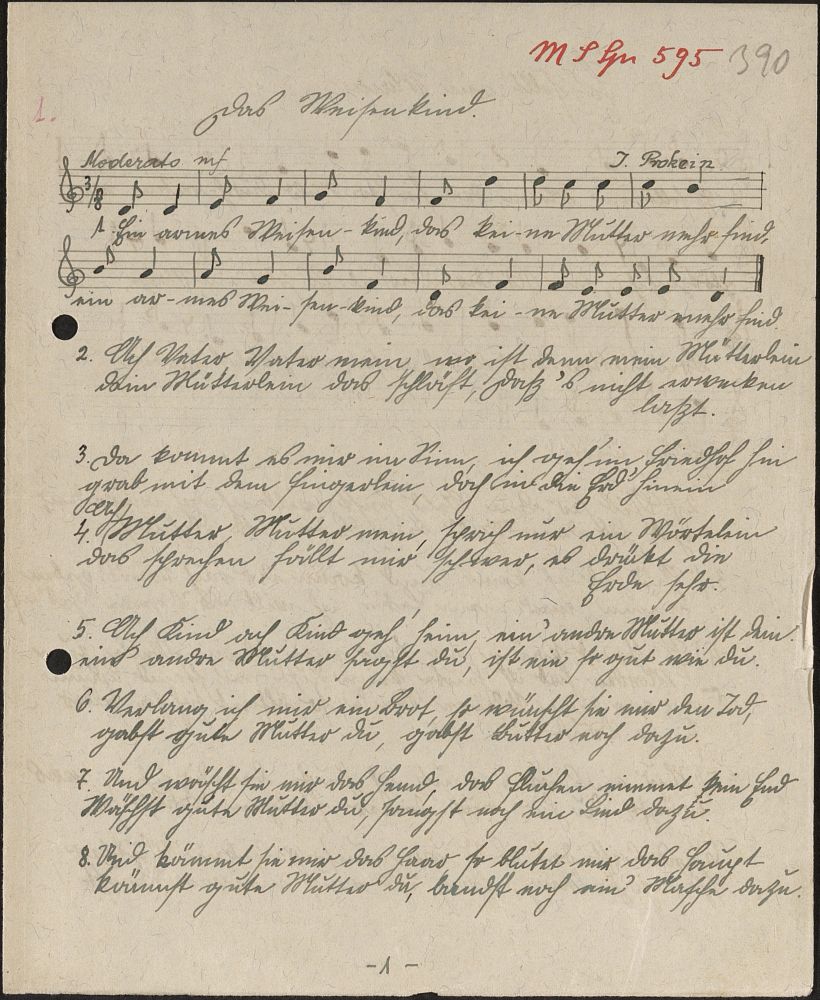 MS Gn 595 390
1.
Das Weisenkind.
Moderato mf J. Prokein
3/8
1 Ein armes Weisen-kind, das kei-ne Mutter mehr find,
ein ar-mes Wei-sen-kind, das kei-ne Mutter mehr find.
2. Ach Vater Vater mein, wo ist denn mein Mütterlein
dein Mütterlein das schläft, daß's nicht erwecken
laßt.
3. Da kommt es mir im Sinn, ich geh im Friedhof hin
grab mit dem fingerlein, doch in die Erd' hinein
4. Ach Mutter, Mutter mein, sprich nur ein Wörtelein
das sprechen fällt mir schwer, es drückt die
Erde sehr.
5. Ach Kind ach Kind geh' heim, ein' andre Mutter ist dein.
ein' andre Mutter sagst du, ist nie so gut wie du.
6. Verlang ich mir ein Brot, so wünscht sie mir den Tod,
gabst gute Mutter du, gabst Butter noch dazu.
7. Und wäscht sie mir das Hemd, das Fluchen nimmet kein End
Wäschst gute Mutter du, sangst noch ein Lied dazu.
8. Und kämmt sie mir das Haar so blutet mir das Haupt
kämmst gute Mutter du, bandst noch ein' Masche dazu.
-1-